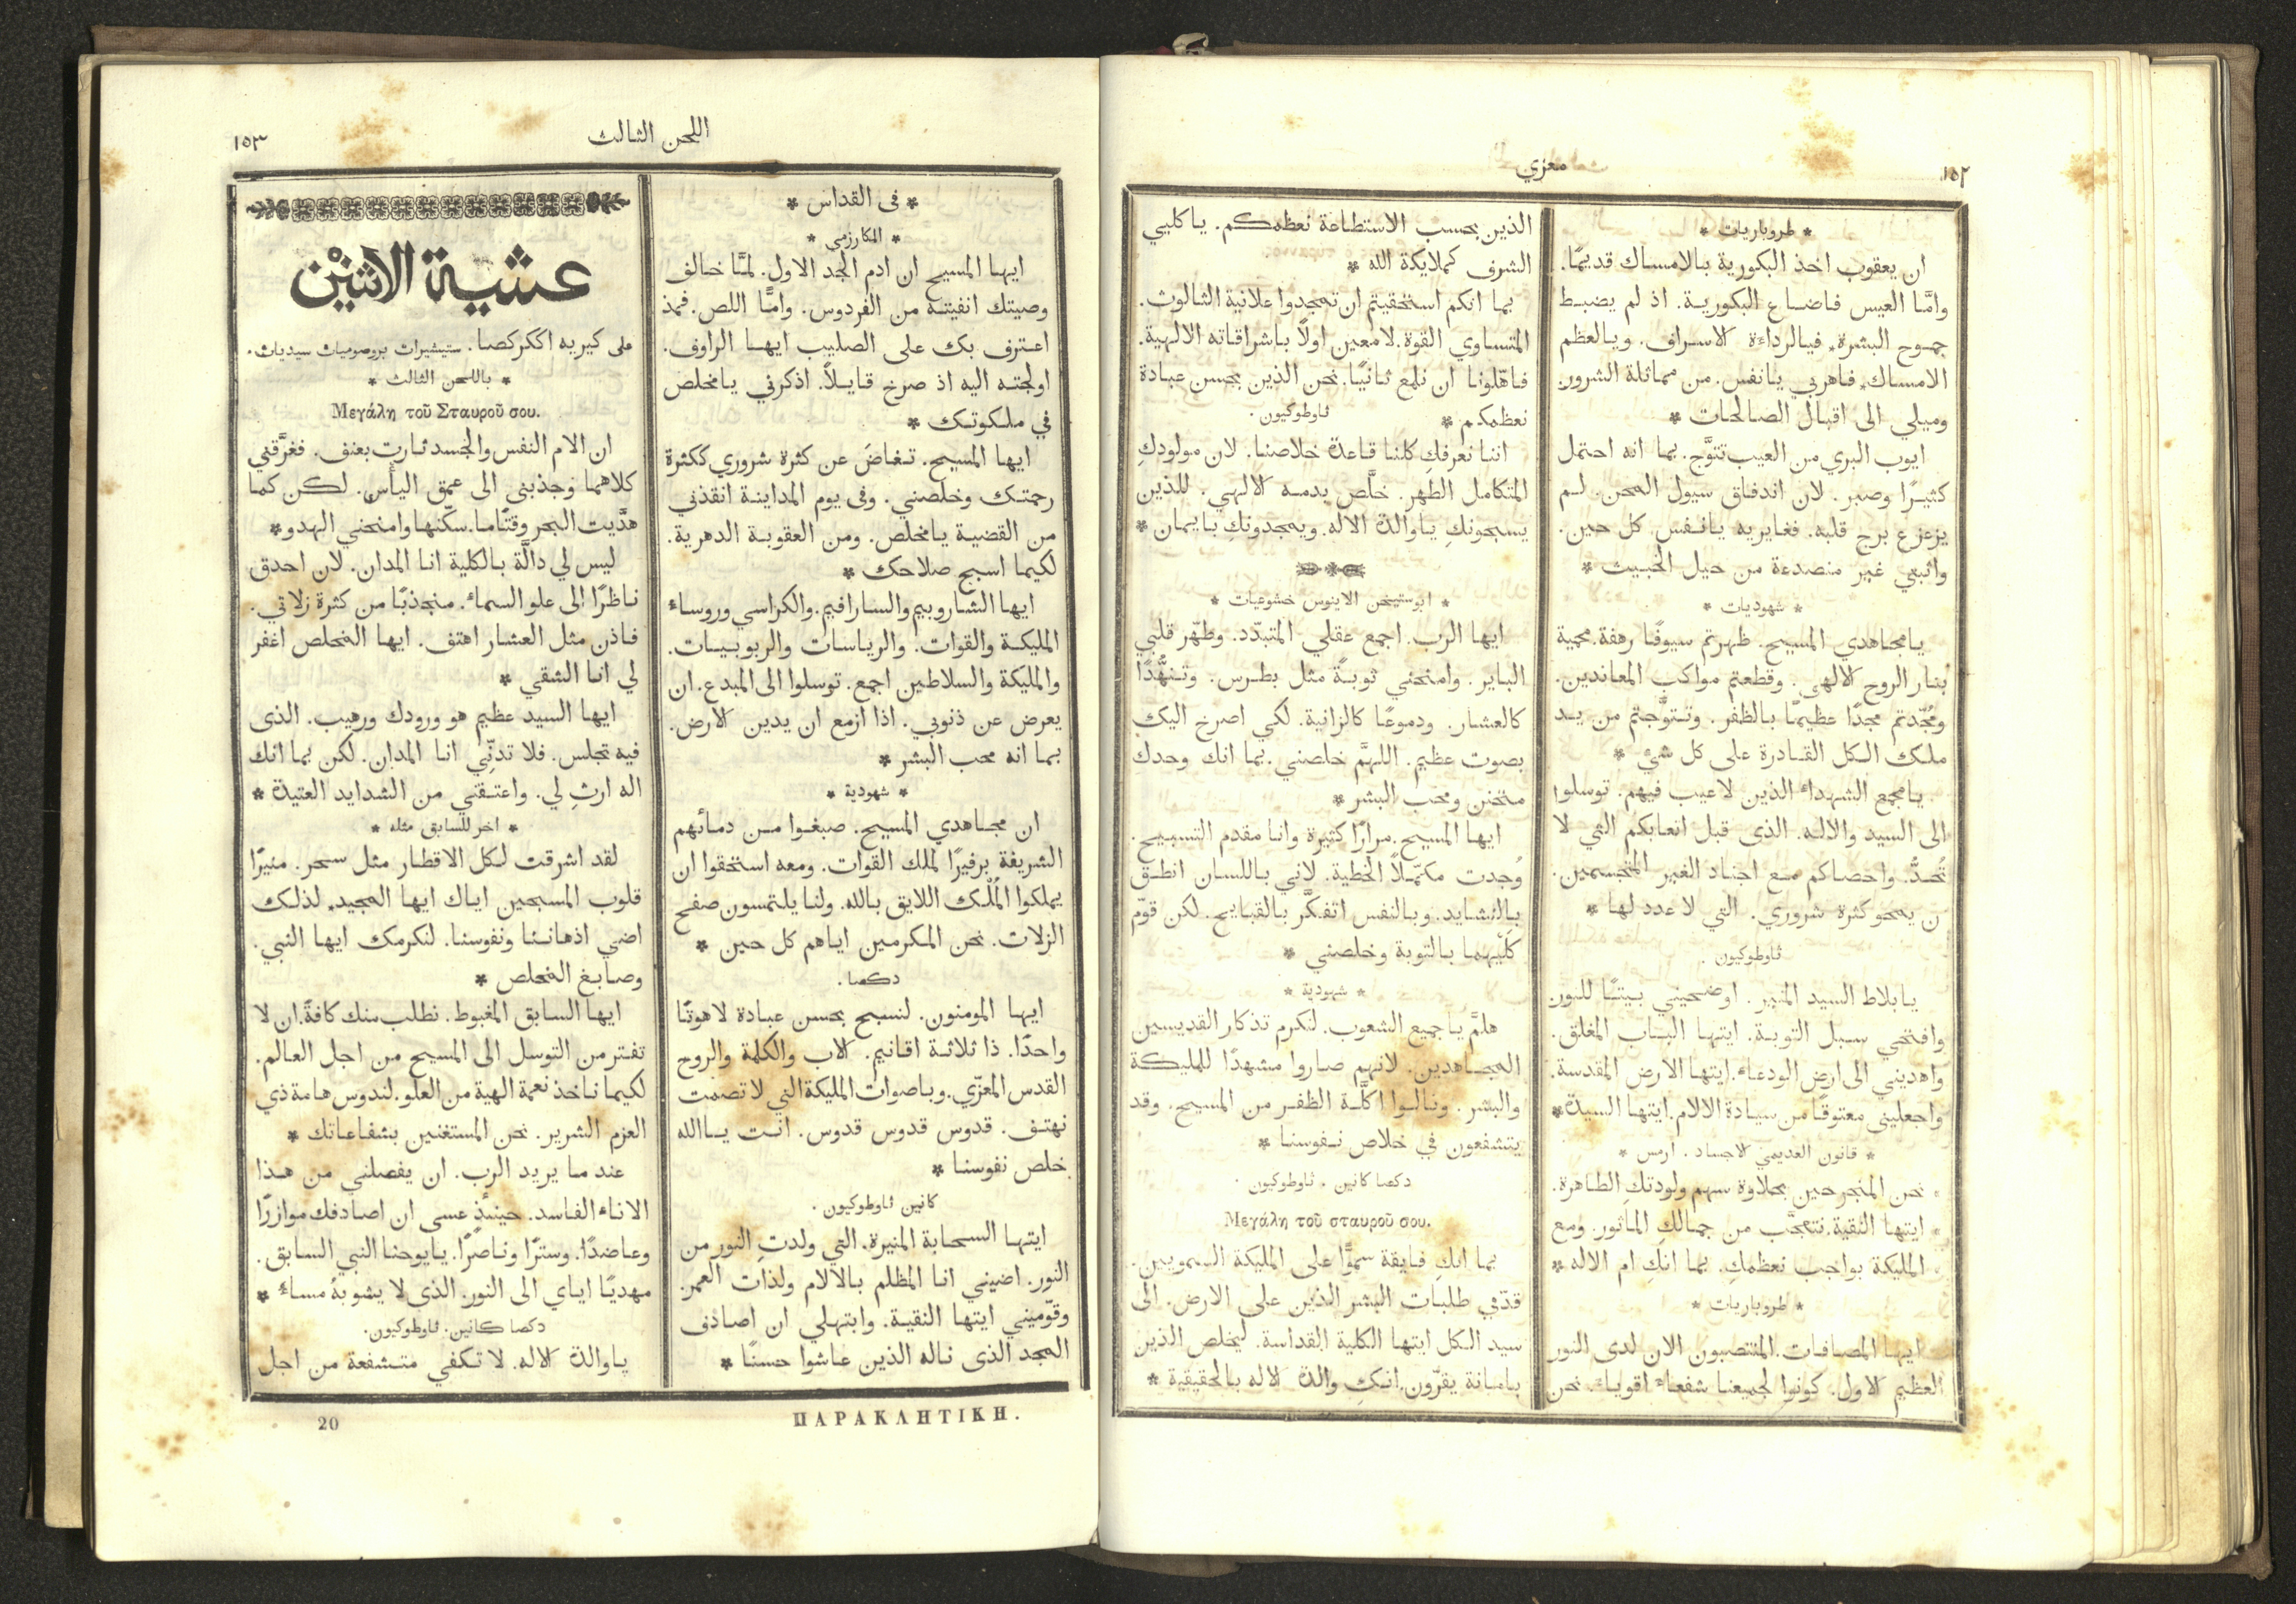 ١٥٢
معزي
* طروباريات *
ان يعقوب اخذ البكورية بالامساك قديمًا.
وامَّا العيس فاضاع البكورية. اذ لم يضبط
جموح البشرة. فيالرداءة الاسراف. ويالعظم
الامساك. فاهربي يانفس. من مماثلة الشرور.
وميلي الى اقبال الصالحات *
ايوب البري من العيب تتوَّج. بما انه احتمل
كثيرًا وصبر. لان اندفاق سيول المحن. لم
يزعزع برج قلبه. فغايريه يانفس كل حين.
واثبتي غير منصدعة من حيل الخبيث *
* شهوديات *
يامجاهدي المسيح. ظهرتم سيوفًا رهفة. محمية
بنار الروح الالهي. وقطعتم مواكب المعاندين.
ومُجّدتم مجدًا عظيمًا بالظفر. وتتوَّجتم من يد
ملك الكل القادرة على كل شئ *
يامجمع الشهداء الذين لاعيب فيهم. توسلوا
الى السيد والاله. الذى قبل اتعابكم التي لا
تُحدُّ. واحصاكم مع اجناد الغير المتجسمين.
ن يمحو كثرة شروري. التي لا عدد لها *
ثاوطوكيون.
يابلاط السيد المنير. اوضحيني بيتًا للنور
وافتحي سبل التوبة. ايتها الباب المغلق.
واهديني الى ارض الودعاء. ايتها الارض المقدسة.
واجعليني معتوقًا من سيادة الالام. ايتها السيدة *
* قانون العديمي الاجساد. ارمس *
نحن المنجرحين بحلاوة سهم ولودتكِ الطاهرة.
ايتها النقية. نتعجَّب من جمالكِ الماثور. ومع
المليكة بواجب نعظمكِ. بما انكِ ام الاله *
* طروباريات *
ايها المصافات. المنتصبون الان لدى النور
العظيم الاول. كونوا لجميعنا شفعاء اقوياء. نحن
الذين بحسب الاستطاعة نعظمكم. ياكليي
الشرف كملايكة الله *
بما انكم استحقيتم ان تمجدوا علانية الثالوث.
المتساوي القوة. لامعين اولًا باشراقاته الالهية.
فاهّلونا ان نلمع ثانيًا. نحن الذين بحسن عبادة
نعظمكم *
ثاوطوكيون.
اننا نعرفكِ كلنا قاعدة خلاصنا. لان مولودكِ
المتكامل الطهر. خلَّص بدمه الالهي. للذين
يسبحونكِ ياوالدة الاله. ويمجدونكِ بايمان *
* ابوستيخن الاينوس خشوعيات *
ايها الرب. اجمع عقلي المتبدّد. وطهّر قلبي
الباير. وامنحني توبةً مثل بطرس. وتنهُّدًا
كالعشار. ودموعًا كالزانية. لكي اصرخ اليك
بصوت عظيم. اللهمَّ خلصني. بما انك وحدك
متحنن ومحب البشر *
ايها المسيح. مرارًا كثيرة وانا مقدم التسبيح.
وُجدت مكمّلًا الخطية. لاني باللسان انطق
بالنشايد. وبالنفس اتفكَّر بالقبايح. لكن قوّم
كلَيهما بالتوبة وخلصني *
* شهودية *
هلمَّ ياجميع الشعوب. لنكرم تذكار القديسين
المجاهدين. لانهم صاروا مشهدًا للمليكة
والبشر. ونالوا اكلَّة الظفر من المسيح. وقد
يتشفعون في خلاص نفوسنا *
دكصا كانين. ثاوطوكيون.
Μεγάλη τοῦ σταυροῦ σου.
بما انكِ فايقة سموًّا على المليكة السمويين.
قدّمي طلبات البشر الذين على الارض. الى
سيد الكل ايتها الكلية القداسة. ليخلص الذين
بامانة يقرّون. انكِ والدة الاله بالحقيقية *
١٥٣
اللحن الثالث
* فى القداس *
* المكارزمي *
ايها المسيح ان ادم الجد الاول. لمَّا خالف
وصيتك انفيته من الفردوس. وامَّا اللص. فمذ
اعترف بك على الصليب ايها الراوف.
اولجته اليه اذ صرخ قايلًا. اذكرني يامخلص
في ملكوتك *
ايها المسيح. تغاضَ عن كثرة شروري ككثرة
رحمتك وخلصني. وفى يوم المداينة انقذني
من القضية يامخلص. ومن العقوبة الدهرية.
لكيما اسبح صلاحك *
ايها الشاروبيم والسارافيم. والكراسي وروساء
المليكة والقوات. والرياسات والربوبيات.
والمليكة والسلاطين اجمع. توسلوا الى المبدع. ان
يعرض عن ذنوبي. اذا ازمع ان يدين الارض.
بما انه محب البشر *
* شهودية *
ان مجاهدي المسيح. صبغوا من دمائهم
الشريفة برفيرًا لملك القوات. ومعه استحقوا ان
يملكوا المُلْك اللايق بالله. ولنا يلتمسون صفح
الزلات. نحن المكرمين اياهم كل حين *
دكصا.
ايها المومنون. لنسبح بحسن عبادة لاهوتًا
واحدًا. ذا ثلاثة اقانيم. الاب والكلمة والروح
القدس المعزّي. وباصوات المليكة التي لا تصمت
نهتف. قدوس قدوس قدوس. انت ياالله
خلص نفوسنا *
كانين ثاوطوكيون.
ايتها السحابة المنيرة. التي ولدتِ النور من
النور. اضيئي انا المظلم بالالام ولذات العمر.
وقوّميني ايتها النقية. وابتهلي ان اصادف
المجد الذى ناله الذين عاشوا حسنًا *
عشية الاثنَيْن
على كيريه اككركصا. ستيشيرات بروصوميات سيديات.
* باللحن الثالث *
Μεγάλη τοῦ Σταυροῦ σου.
ان الام النفس والجسد ثارت بعنف. فغرَّقني
كلاهما وجذبني الى عمق اليأس. لكن كما
هدَّيت البحر وقتًا ما. سكّنها وامنحني الهدو *
ليس لي دالَّة بالكلية انا المدان. لان احدق
ناظرًا الى علو السماء. منجذبًا من كثرة زلاتي.
فاذن مثل العشار اهتف. ايها المخلص اغفر
لي انا الشقي *
ايها السيد عظيم هو ورودك ورهيب. الذى
فيه تجلس. فلا تدنِّي انا المدان. لكن بما انك
اله ارثِ لي. واعتقني من الشدايد العتيدة *
* اخر للسابق مثله *
لقد اشرقت لكل الاقطار مثل سحر. منيرًا
قلوب المسبحين اياك ايها المجيد. لذلك
اضي اذهاننا ونفوسنا. لنكرمك ايها النبي.
وصابغ المخلص *
ايها السابق المغبوط. نطلب منك كافةً. ان لا
تفتر من التوسل الى المسيح من اجل العالم.
لكيما ناخذ نعمة الهية من العلو. لندوس هامة ذي
العزم الشرير. نحن المستغنين بشفاعاتك *
عند ما يريد الرب. ان يفصلني من هذا
الاناء الفاسد. حينئذٍ عسى ان اصادفك موازرًا
وعاضدًا. وسترًا وناصرًا. يايوحنا النبي السابق.
مهديًا اياي الى النور. الذى لا يشوبهُ مساء *
دكصا كانين. ثاوطوكيون.
ياوالدة الاله. لا تكفي متشفعة من اجل
ΠΑΡΑΚΛΗΤΙΚΗ.
20